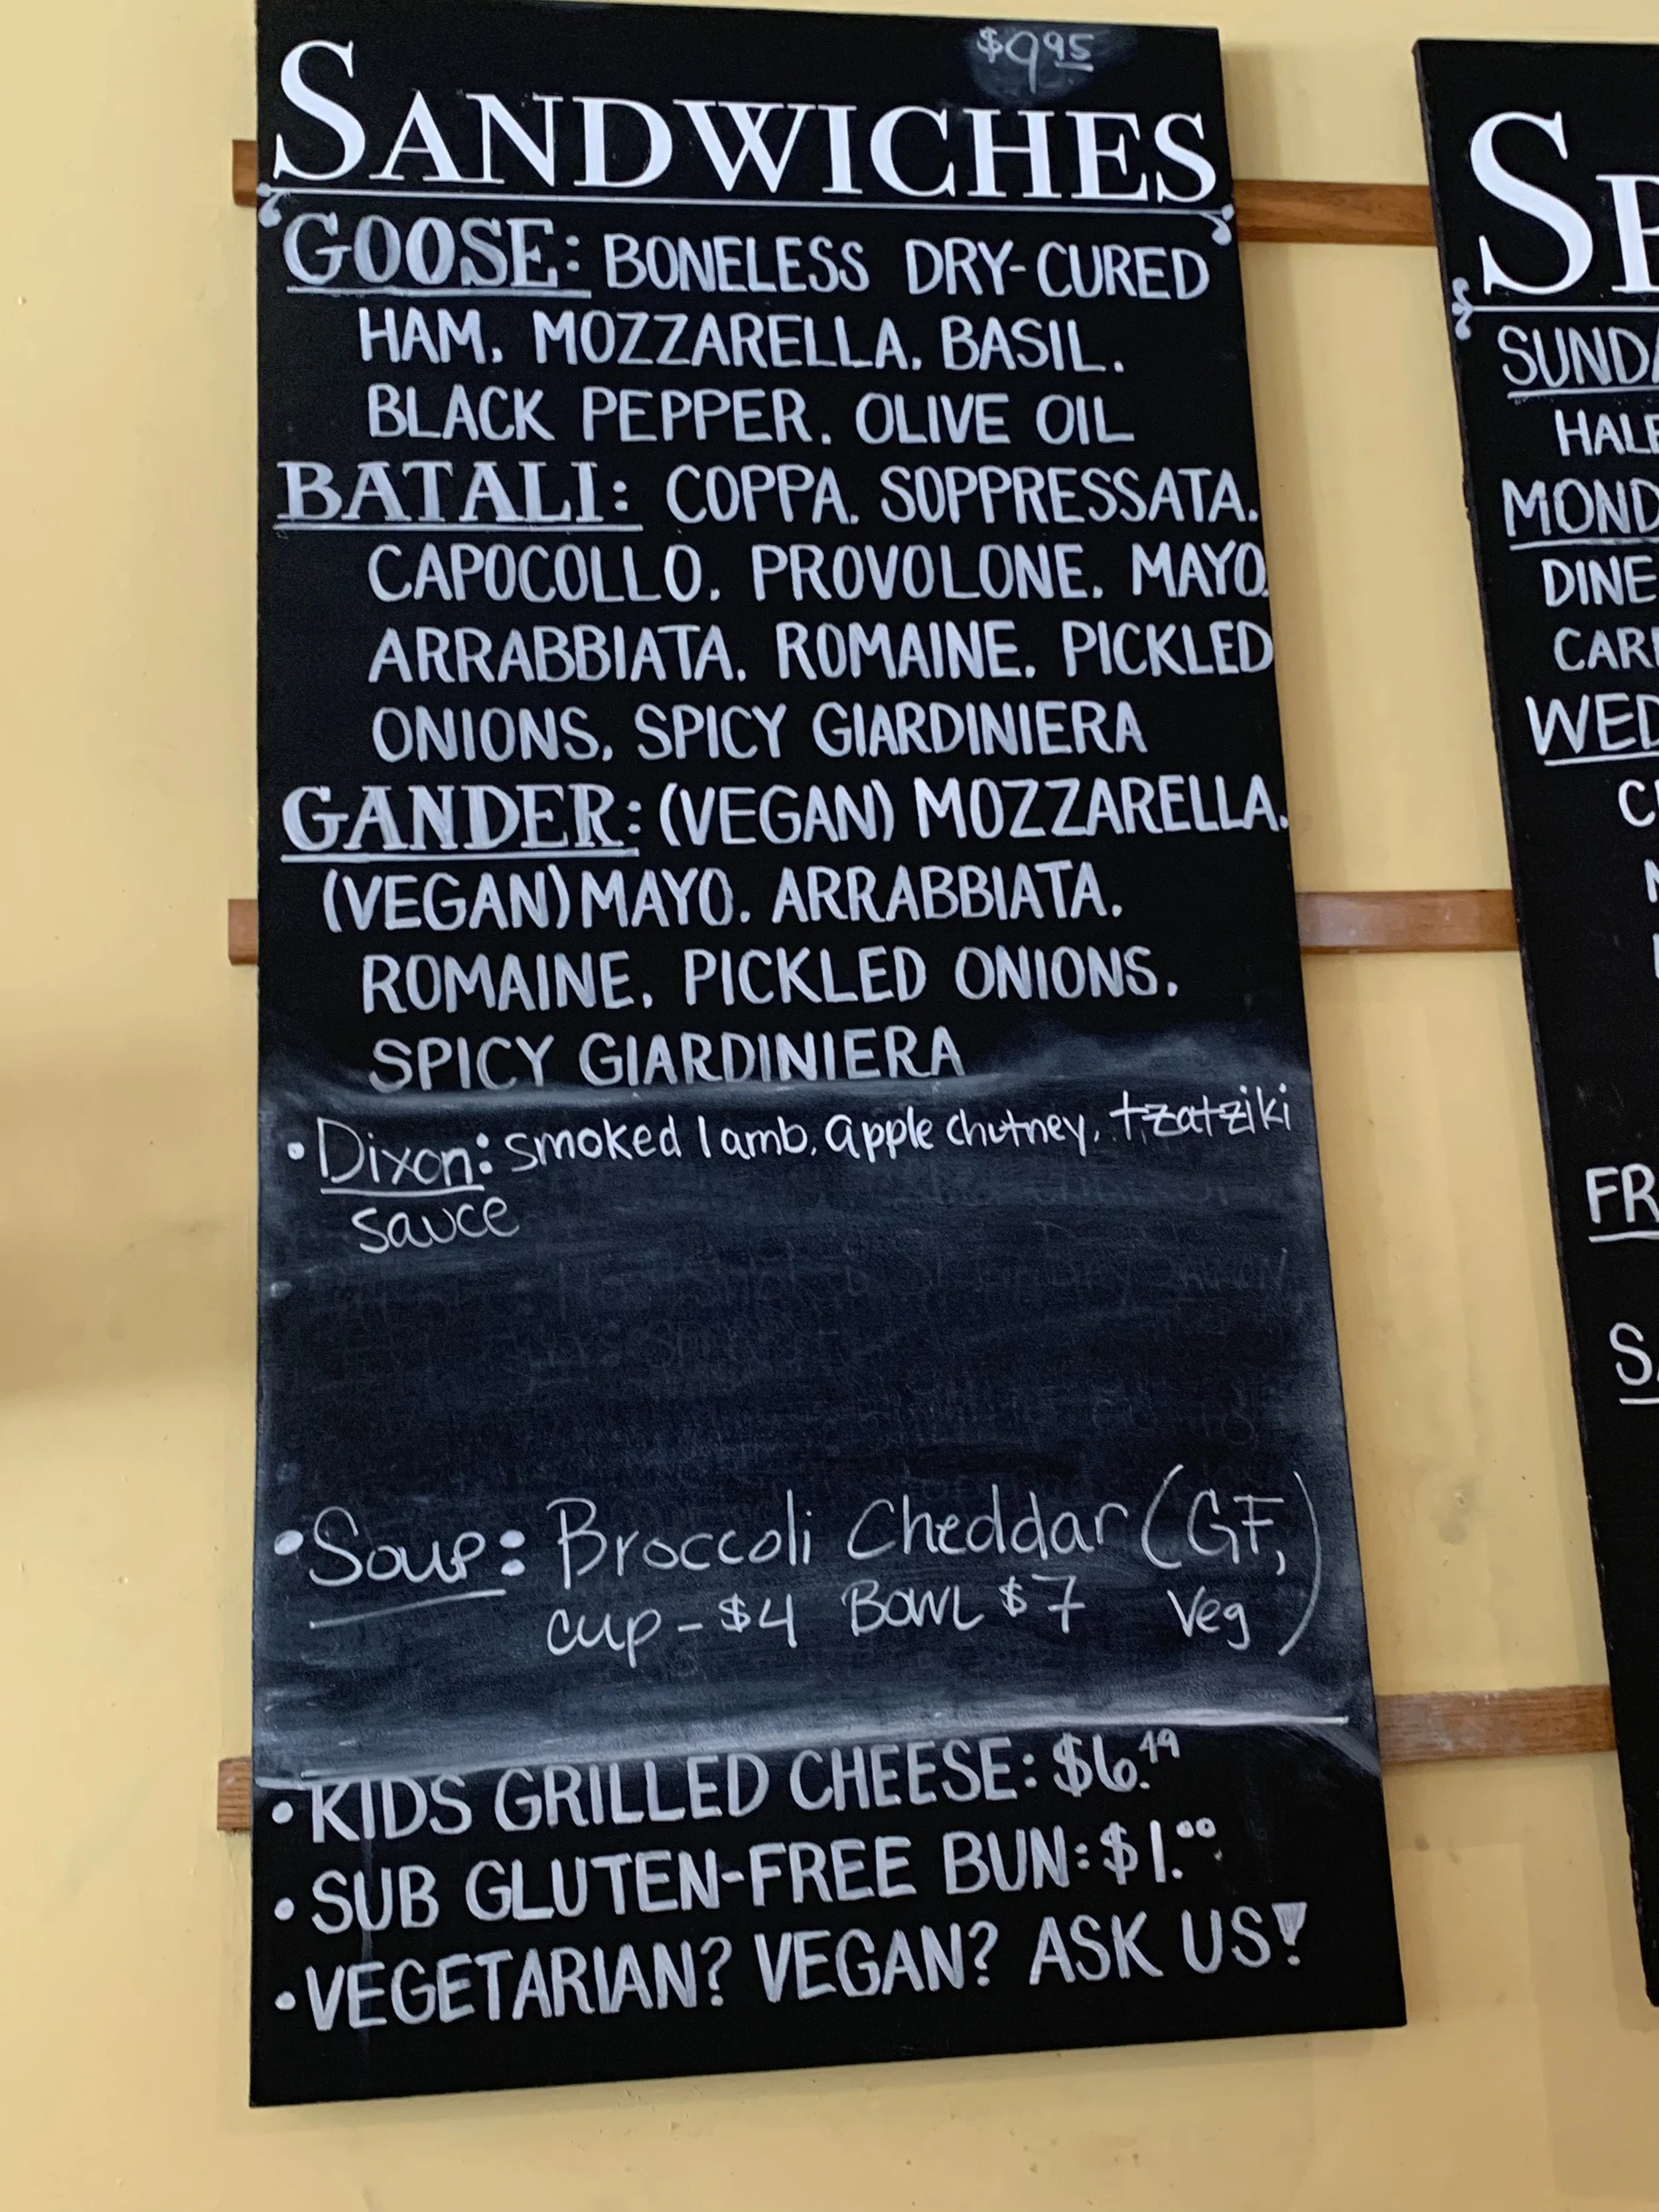 $9.95
SANDWICHES
GOOSE: BONELESS DRY-CURED
HAM. MOZZARELLA. BASIL.
BLACK PEPPER. OLIVE OIL
BATALI: COPPA. SOPPRESSATA.
CAPOCOLLO. PROVOLONE. MAYO.
ARRABBIATA. ROMAINE. PICKLED
ONIONS. SPICY GIARDINIERA
GANDER: (VEGAN) MOZZARELLA.
(VEGAN) MAYO. ARRABBIATA.
ROMAINE. PICKLED ONIONS.
SPICY GIARDINIERA
• Dixon: smoked lamb, apple chutney, tzatziki
sauce
• Soup: Broccoli Cheddar (GF,
cup - $4 BOWL $7 Veg)
• KIDS GRILLED CHEESE: $6.49
• SUB GLUTEN-FREE BUN: $1.00
• VEGETARIAN? VEGAN? ASK US!
SUNDA
MOND
DINE
WED
FR